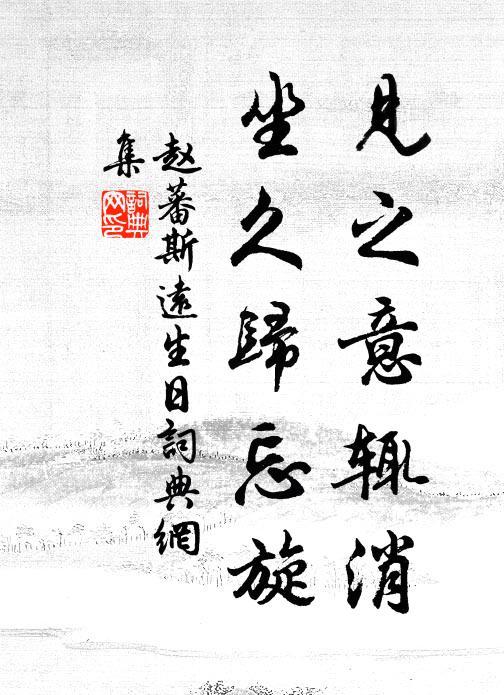 見之意辄消
坐久歸忘旋
赵蕃斯遠生日詞典網
集
詞典
网印